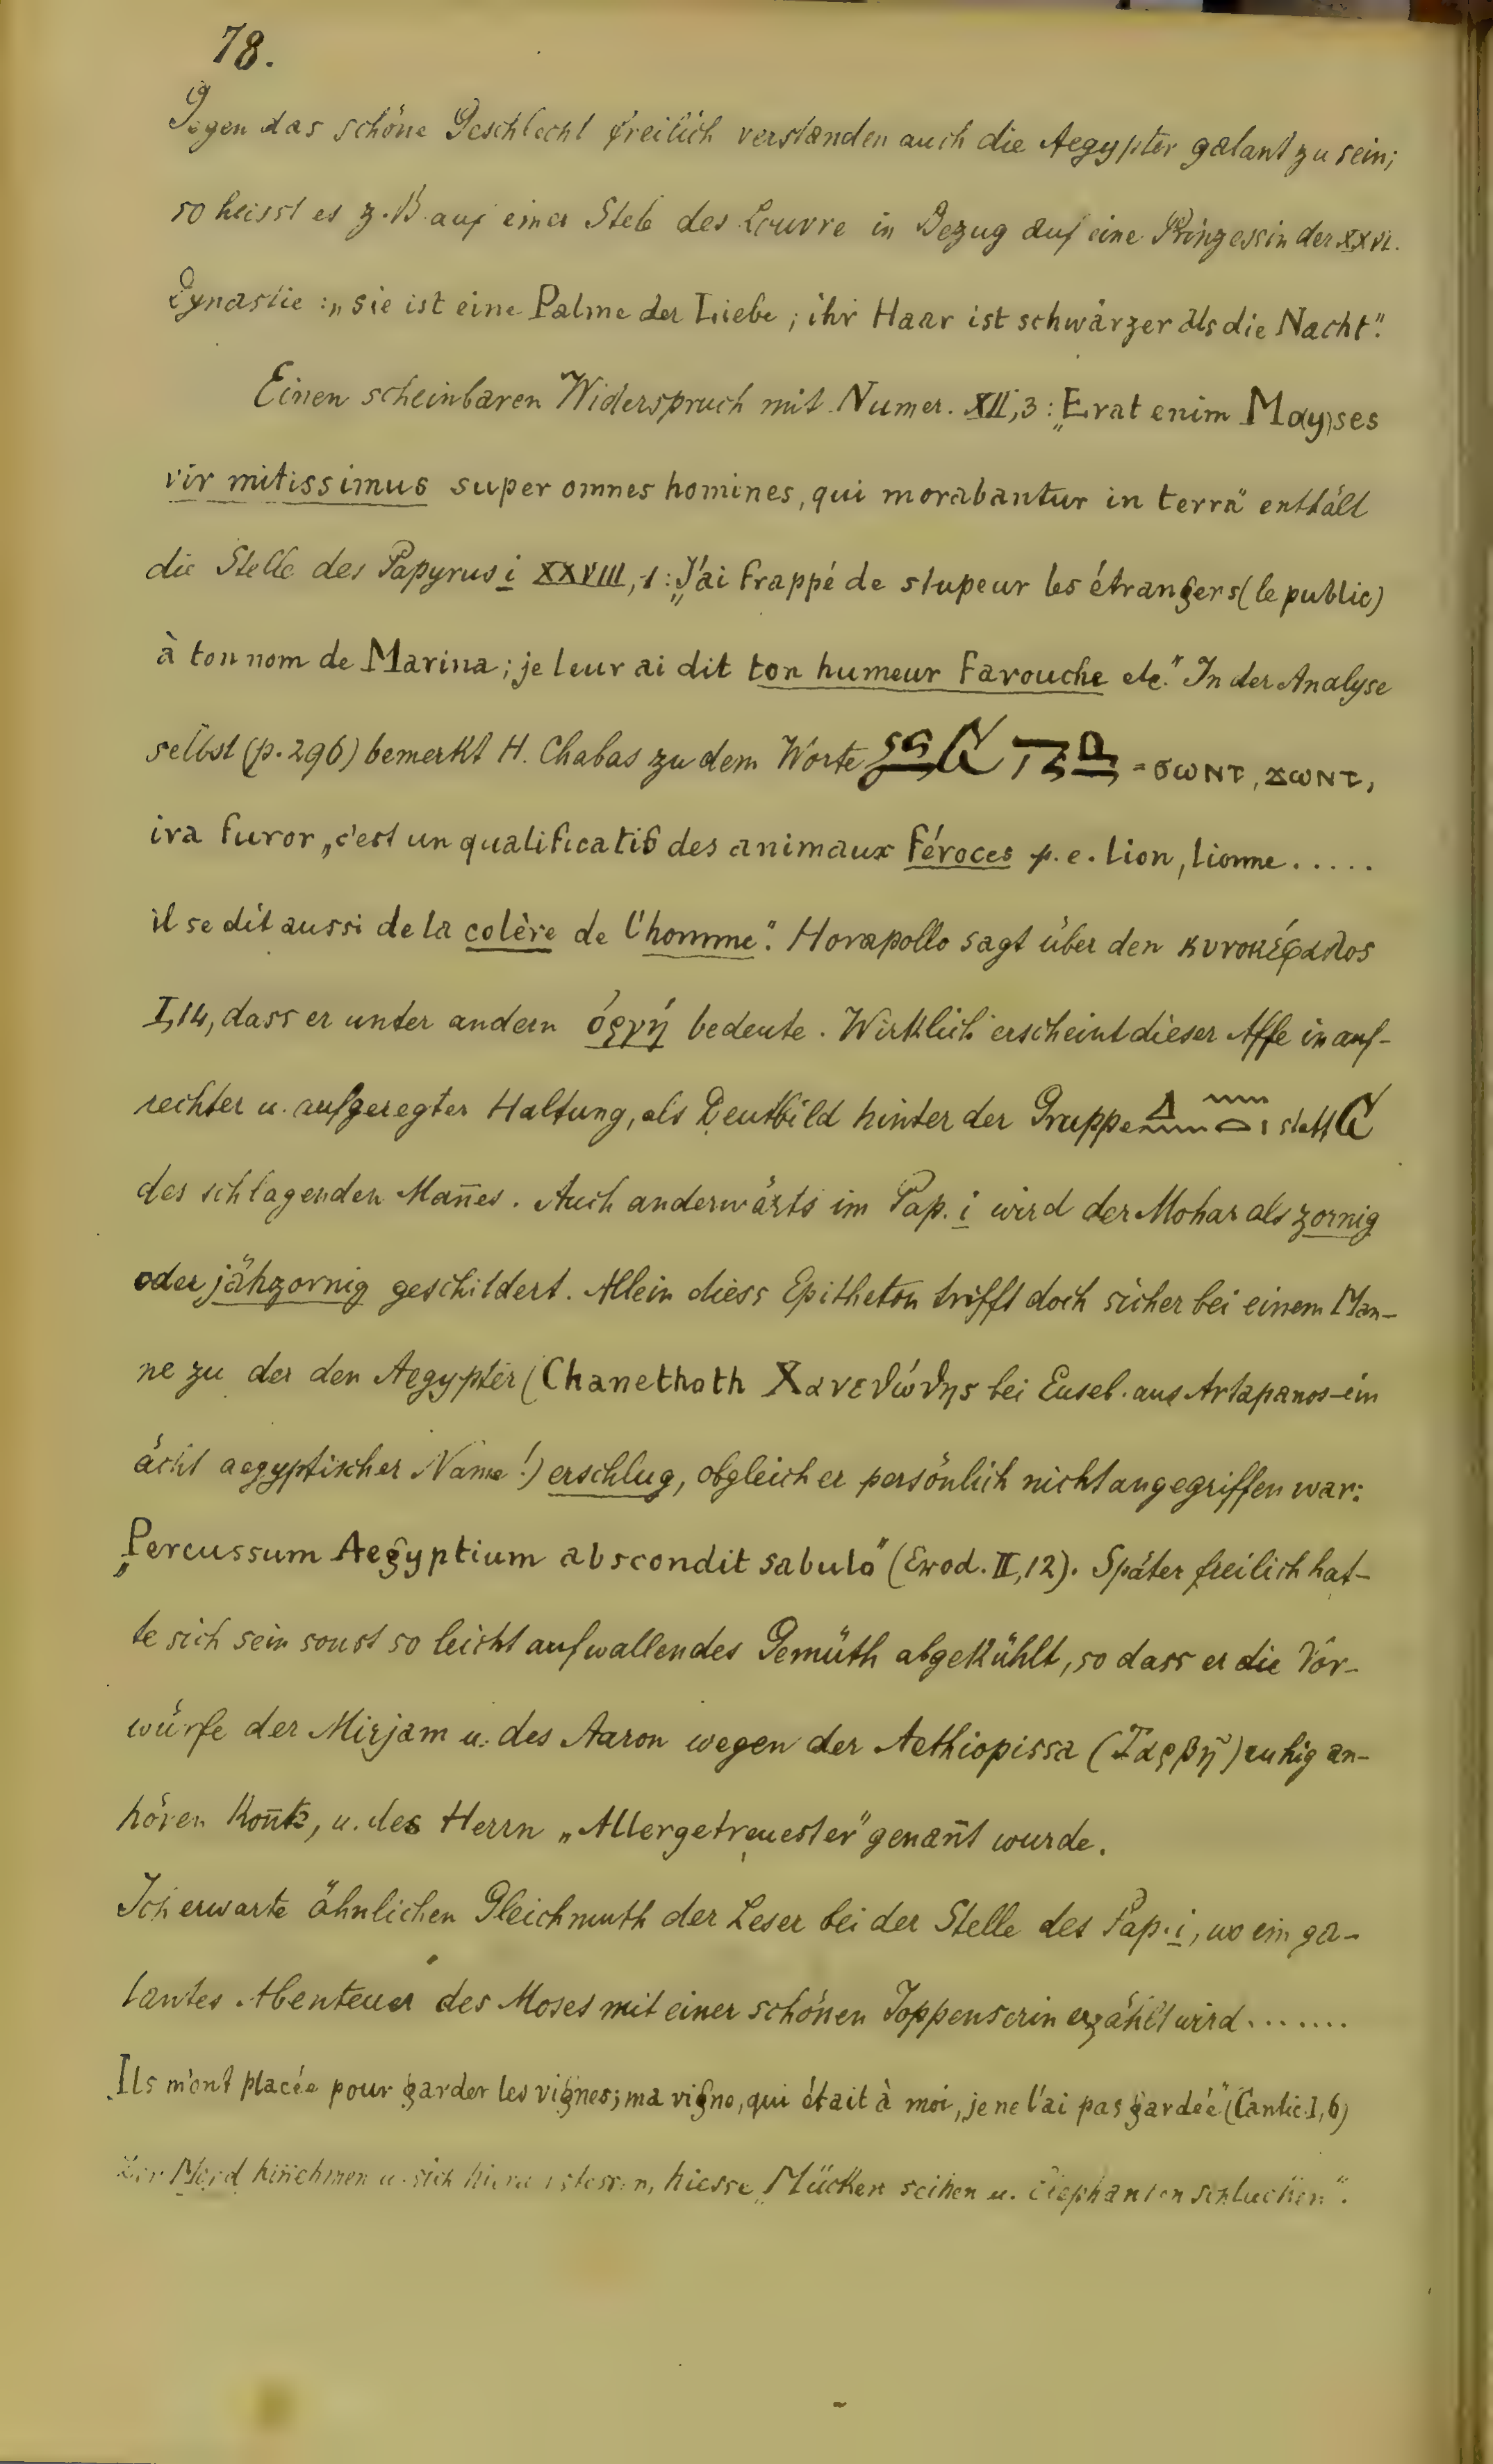 78.
Gegen das schöne Geschlecht freilich verstanden auch die Aegypter galant zu sein;
so heisst es z. B. auf einer Stele des Louvre in Bezug auf eine Prinzessin der XXVI.
Dynastie: „sie ist eine Palme der Liebe; ihr Haar ist schwärzer als die Nacht".
Einen scheinbaren Widerspruch mit Numer. XII, 3: „Erat enim Mo(y)ses
vir mitissimus super omnes homines, qui morabantur in terra" enthält
die Stelle des Papyrus i XXVIII, 1: „J'ai frappé de stupeur les étrangers (le public)
à ton nom de Marina; je leur ai dit ton humeur farouche etc." In der Analyse
selbst (p. 296) bemerkt H. Chabas zu dem Worte = ϭωντ, ϫωντ,
ira furor „c'est un qualificatif des animaux féroces p. e. lion, lionne.....
il se dit aussi de la colère de l'homme". Horapollo sagt über den κυνοκέφαλος
I, 14, dass er unter andern ὀργή bedeute. Wirklich erscheint dieser Affe in auf-
rechter u. aufgeregter Haltung, als Deutbild hinter der Gruppe statt
des schlagenden Man̄es. Auch anderwärts im Pap. i wird der Mohar als zornig
oder jähzornig geschildert. Allein diess Epitheton trifft doch sicher bei einem Man-
ne zu der den Aegypter (Chanethoth Χανεθώθης bei Euseb. aus Artapanos - ein
ächt aegyptischer Name!) erschlug, obgleich er persönlich nicht angegriffen war:
„Percussum Aegyptium abscondit sabulo" (Exod. II, 12). Später freilich hat-
te sich sein sonst so leicht aufwallendes Gemüth abgekühlt, so dass er die Vor-
würfe der Mirjam u. des Aaron wegen der Aethiopissa (Θαρβη) ruhig an-
hören kon̄te, u. des Herrn „Allergetreuester" genan̄t wurde.
Ich erwarte ähnlichen Gleichmuth der Leser bei der Stelle des Pap. i, wo ein ga-
lantes Abenteuer des Moses mit einer schönen Joppenserin erzählt wird.......
Ils m'ont placée pour garder les vignes; ma vigne, qui était à moi, je ne l'ai pas gardée" (Cantic. I, 6)
Mord hin̄ehmen u. sich hieran stossen, hiesse „Mücken seihen u. Elephanten schlucken".